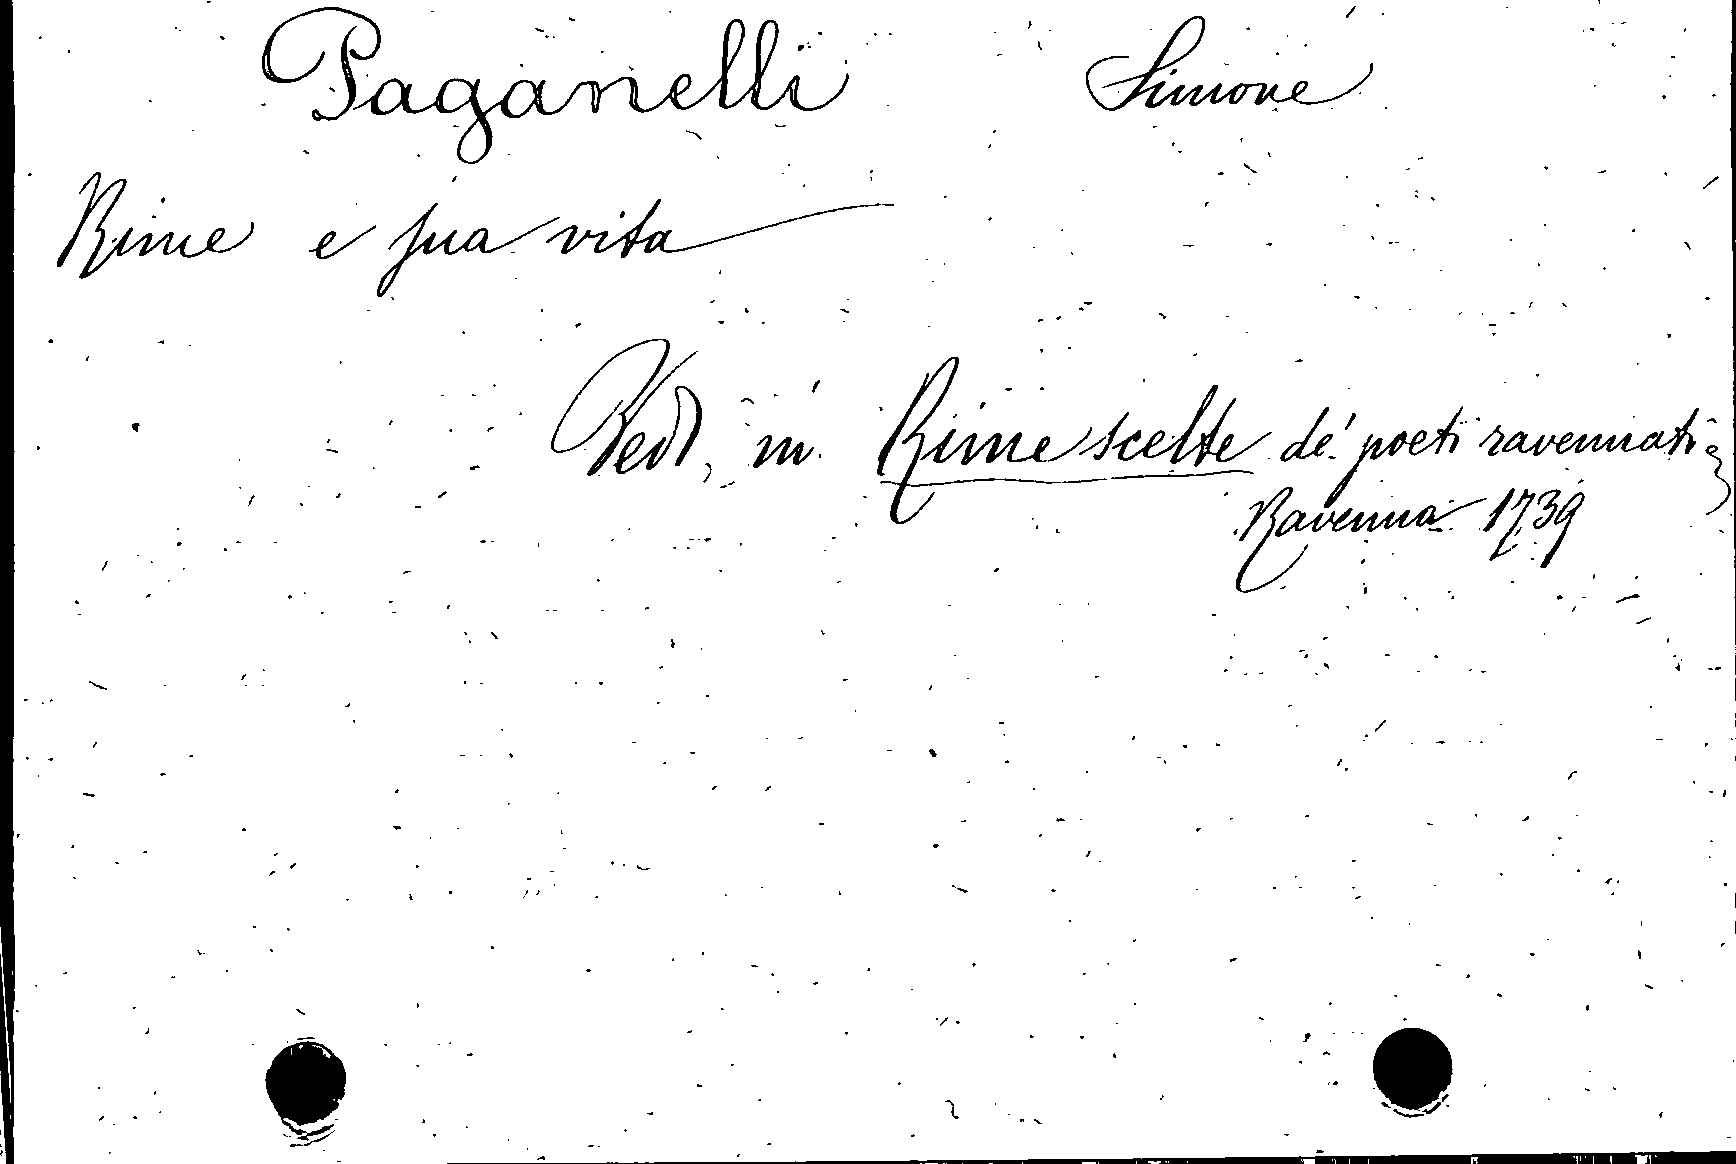 Paganelli Simone
Rime e sua vita
Ved, in Rime scelte de' poeti ravennati,
Ravenna 1739